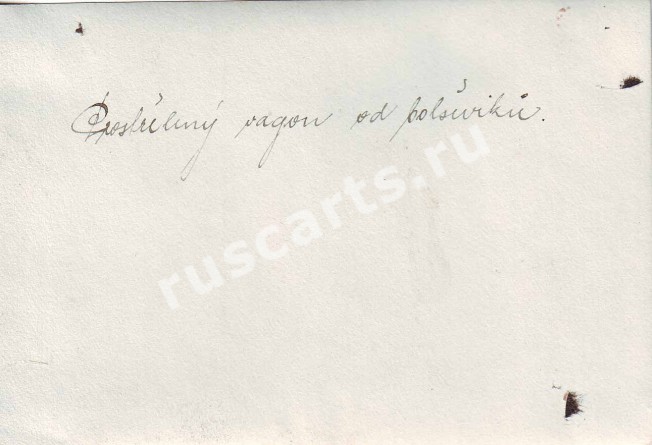 Prostřelený vagon od bolševiků.
ruscarts.ru